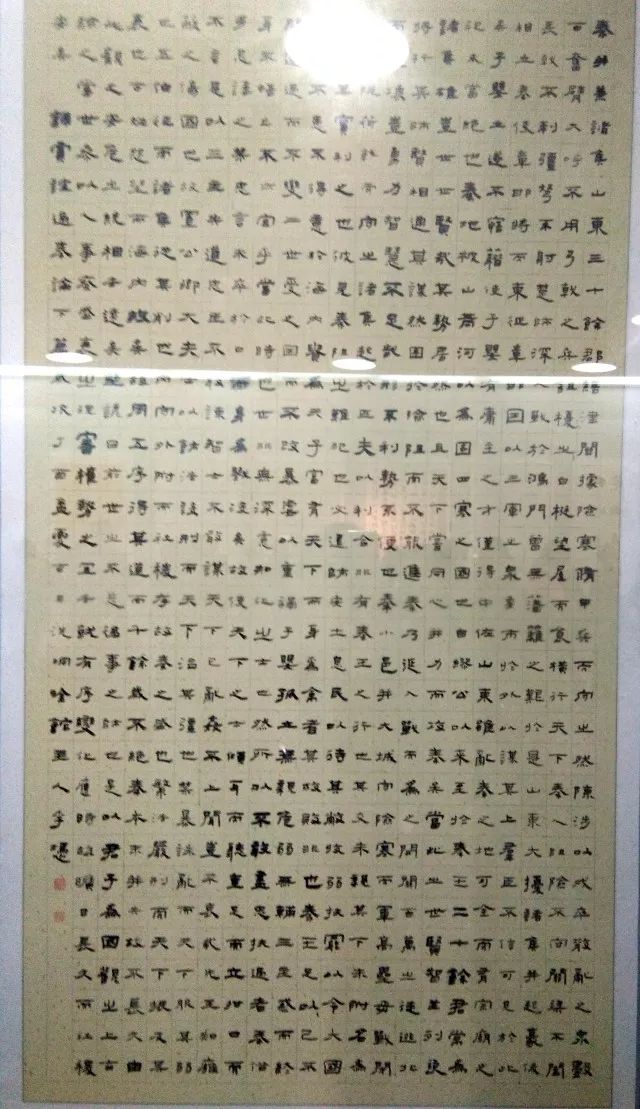 秦并兼諸侯山東三十餘郡繕津關據險塞脩甲兵而守之然陳涉以戍卒散亂之衆數
百奮臂大呼不用弓戟之兵鉏櫌白梃望屋而食橫行天下秦人阻險不守關梁不闔
長戟不刺彊弩不射楚師深入戰於鴻門曾無藩籬之艱於是山東大擾諸侯並起豪俊
相立秦使章邯將而東征章邯因以三軍之衆要市於外以謀其上群臣不信可見於此
矣子嬰立遂不寤藉使子嬰有庸主之才僅得中佐山東雖亂秦之地可全而有宗廟之
祀未當絕也秦地被山帶河以為固四塞之國也自繆公以來至於秦王二十餘君常為
諸侯雄豈世世賢哉其勢居然也且天下嘗同心并力而攻秦矣當此之世賢智並列良
將行其師賢相通其謀然困於險阻而不能進秦乃延入戰而為之開關百萬之徒逃北
而遂壞豈勇力智慧不足哉形不利勢不便也秦小邑并大城守險塞而軍高壘毋戰閉
荷戟而守之諸侯起於匹夫以利合非有素王之行也其交未親其下未附名為
其實利之也彼見秦阻之難犯也必退師安土息民以待其敝收弱扶罷以令大國
不患不得意於海內貴為天子富有天下而身為禽者其救敗非也秦王足己不
問遂過而不變二世受之因而不改暴虐以重禍子嬰孤立無親危弱無輔三主惑而終
身不悟亡不亦宜乎當此時也世非無深慮知化之士也然所以不敢盡忠拂過者秦俗
多忌諱之禁忠言未卒於口而身為戮沒矣故使天下之士傾耳而聽重足而立拑口而
不言是以三主失道忠臣不敢諫智士不敢謀天下已亂姦不上聞豈不哀哉先王知雍
蔽之傷國也故置公卿大夫士以飾法設刑而天下治其彊也禁暴誅亂而天下服其弱
也五伯征而諸侯從其削也內守外附而社稷存故秦之盛也繁法嚴刑而天下振及其
衰也百姓怨望而海內畔矣故周五序得其道而千餘歲不絕秦本末並失故不長久由
此觀之安危之統相去遠矣野諺曰前世之不忘後事之師也是以君子為國觀之上古
驗之當世參以人事察盛衰之理審權勢之宜去就有序變化應時故曠日長久而社稷
安矣 錄賈誼過秦論下篇歲次丁酉孟夏 吟館主人李